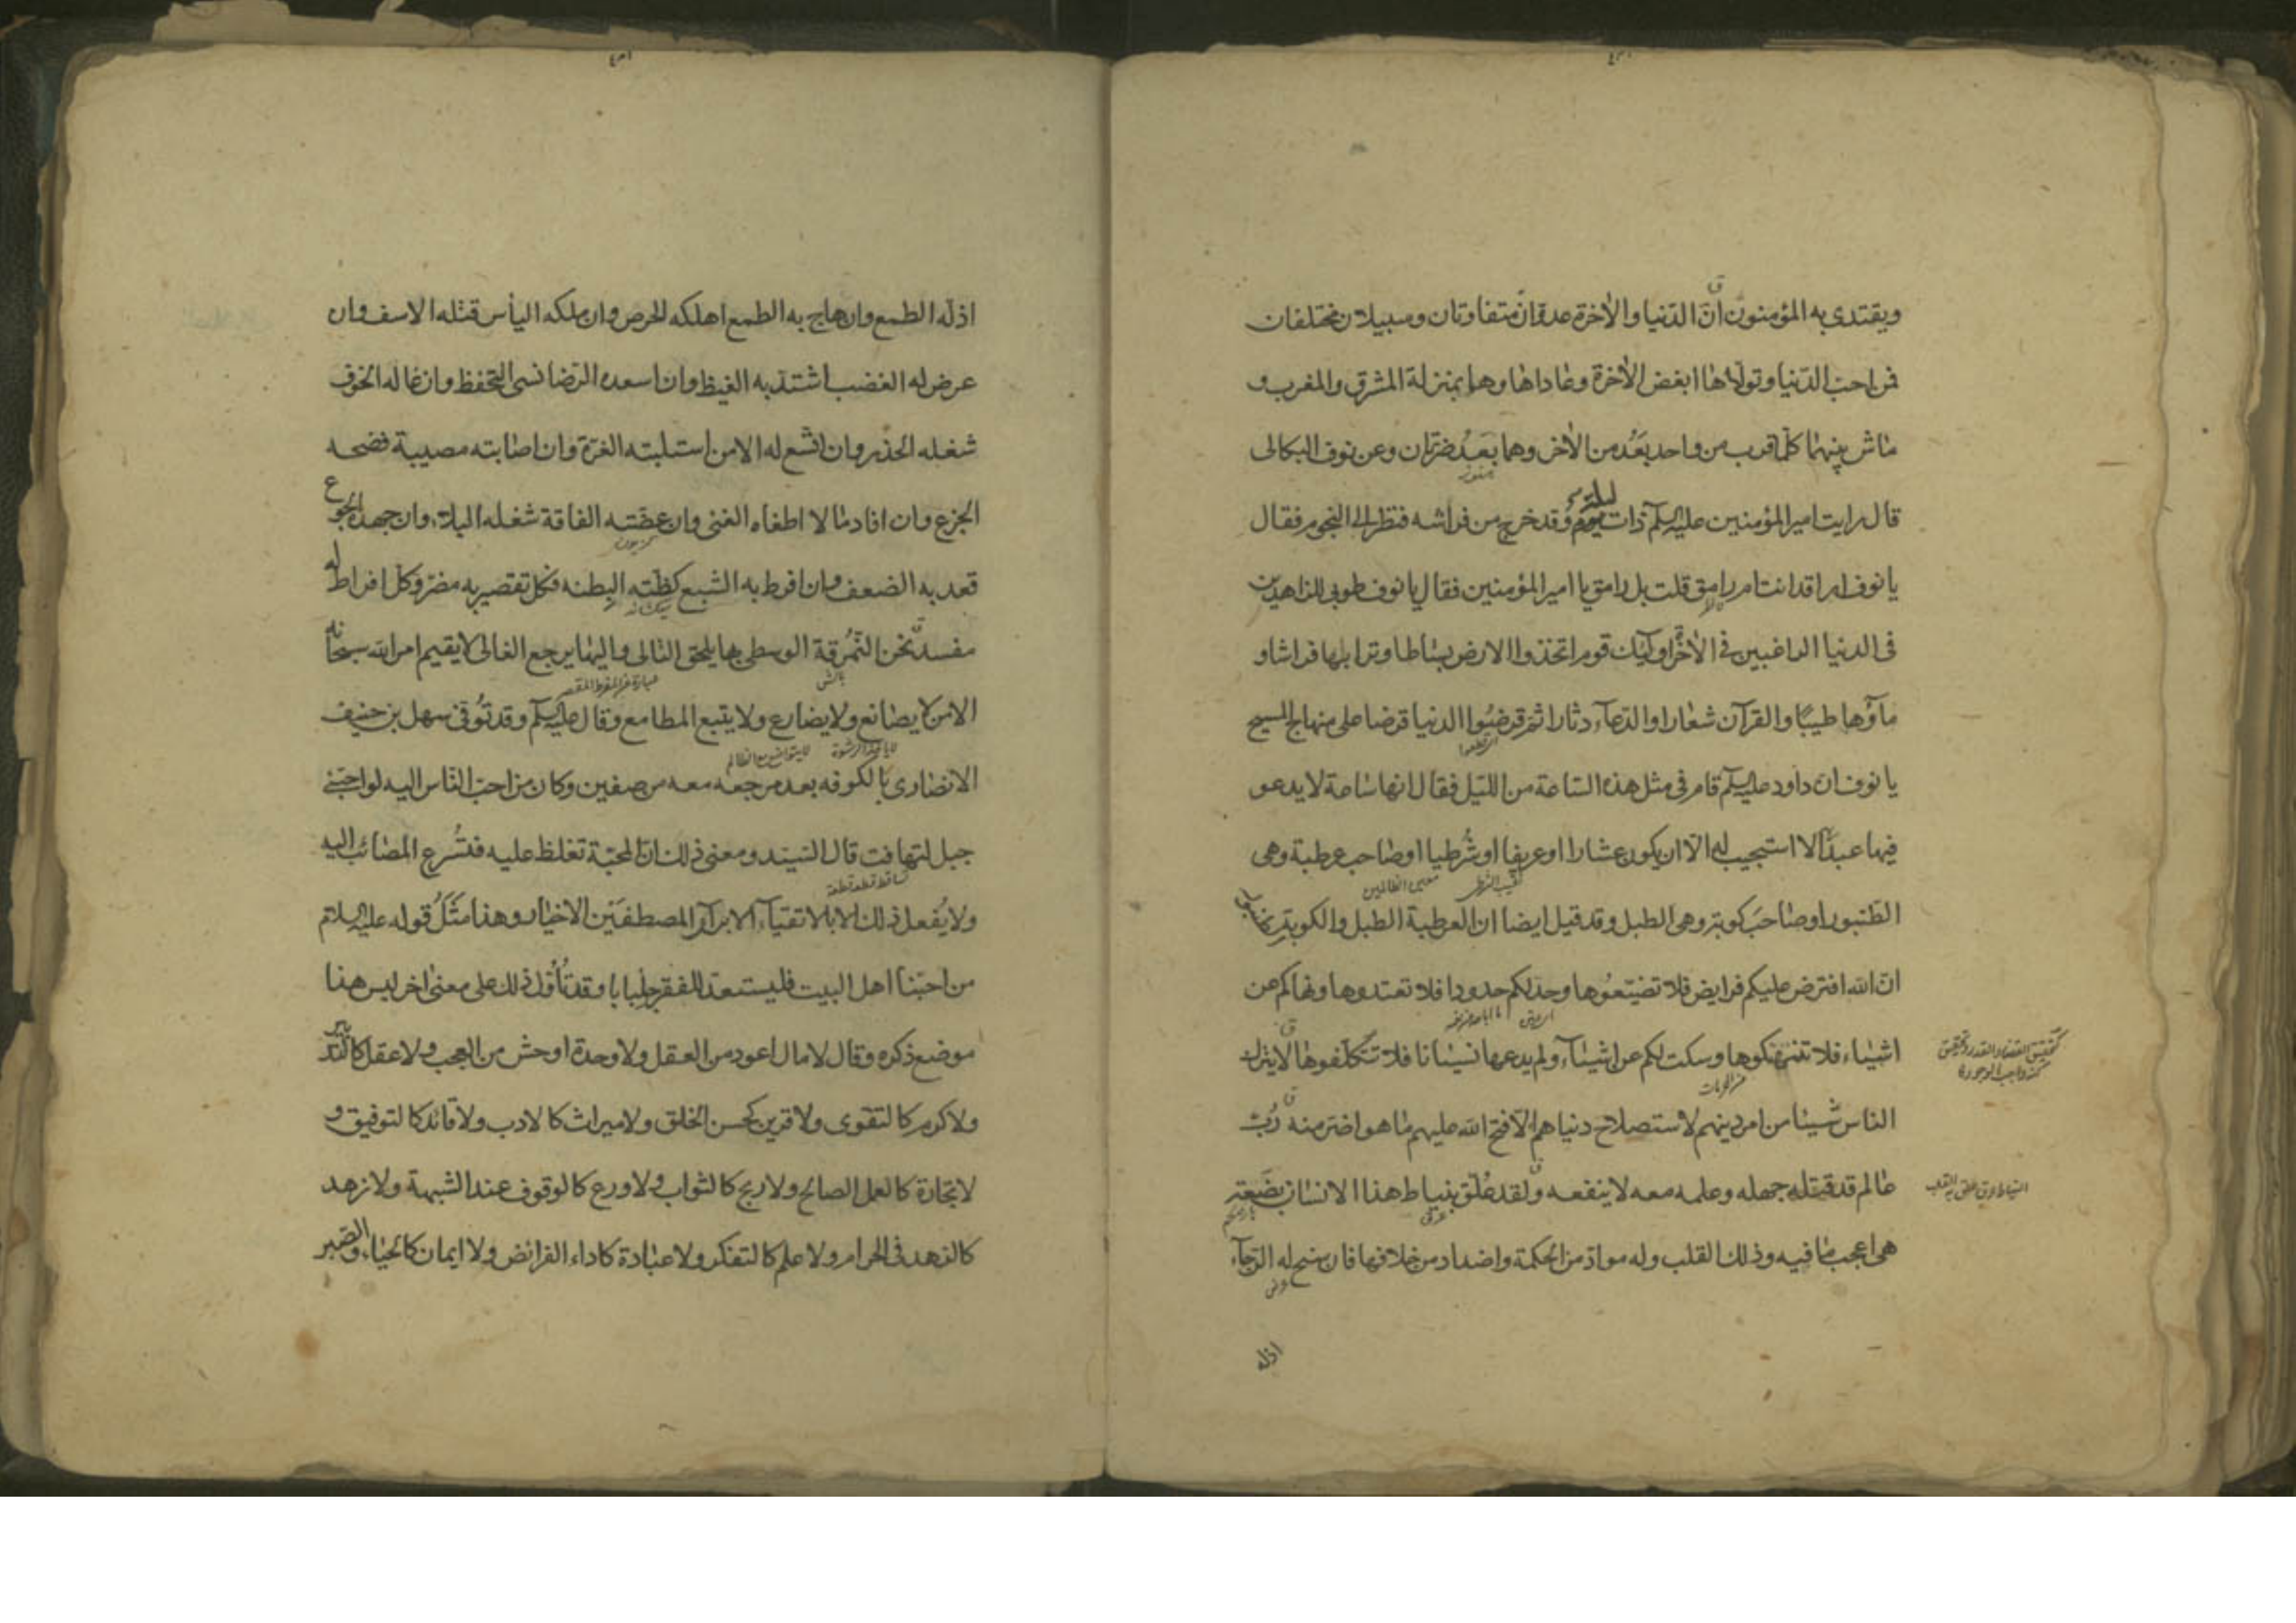 ويقتدى به المؤمنون انّ الدّنيا والاٰخرة عدوّان متفاوتان وسبيلان مختلفان
فمن احبّ الدّنيا وتولّاها ابغض الاٰخرة وعاداها وهما بمنزلة المشرق والمغرب و
ماش بينهما كلّما قرب من واحد بَعُد من الاٰخر وهما بَعدُ ضرّتان وعن نوف البكالى
قال رايت اميرالمؤمنين عليه السلم ذات ليلة وقد خرج من فراشه فنظر الى النجوم فقال
يا نوف اراقد انت ام رامق قلت بل رامق يا اميرالمؤمنين فقال يا نوف طوبى للزاهدين
فى الدنيا الراغبين فى الاٰخرة اولٓئك قوم اتخذوا الارض بساطا وترابها فراشا و
مآؤها طيبًا والقرآن شعارا والدّعآء دثارا ثم قرضوا الدنيا قرضا على منهاج المسيح
اى قطعوا
يا نوف ان داود عليه السلم قام فى مثل هذه السّاعة من اللّيل فقال انها ساعة لا يدعو
فيها عبد الا استجيب له الّا ان يكون عشارا او عريفا او شُرطيا او صاحب عرطبة وهى
معين الظالمين
الطّنبور او صاحبَ كوبة وهى الطبل وقد قيل ايضا ان العرطبة الطبل والكوبة
انّ الله افترض عليكم فرايض فلا تضيّعُوها وحدّ لكم حدودا فلا تعتدوها ونهاكم عن
اشياء فلا تنتهكوها وسكت لكم عن اشيآء ولم يدعها نسيانا فلا تتكلّفوها لا يترك
من الحرمات
الناس شيئا من امر دينهم لاستصلاح دنياهم الّا فتح الله عليهم ما هو اضرّ منه رُبّ
عالم قد قتله جهله وعلمه معه لا ينفعه ولقد عُلّق بنياط هذا الانسان بضعة
عرق
هى اعجب ما فيه وذلك القلب وله موادّ من الحكمة واضداد من خلافها فان سنح له الرّجآء
اذله
تحقيق القضاء والقدر وتحقيق
كنه واجب الوجود
النياط عرق علق به القلب
اذلّه الطمع وان هاج به الطمع اهلكه الحرص وان ملكه اليأس قتله الاسف وان
عرض له الغضب اشتدّ به الغيظ وان اسعده الرّضا نسى التّحفظ وان غاله الخوف
شغله الحذر وان اتّسع له الامن استلبته الغرّة وان اصابته مصيبة فضحه
الجزع وان افاد مالا اطغاه الغنى وان عضّته الفاقة شغله البلاء وان جهده الجوع
قعد به الضعف وان افرط به الشبع كظّته البطنه فكل تقصير به مضرّ وكلّ افراط له
مفسد نحن النُّمرُقة الوسطى بها يلحق التالى واليها يرجع الغالى لا يقيم امر الله سبحانه
بالش
الا من لا يصانع ولا يضارع ولا يتبع المطامع وقال عليه السلم وقد توُفّى سهل بن حنيف
لا ياخذ الرشوة لا يتواضع مع الظالم
الانصارى بالكوفه بعد مرجعه معه من صفين وكان من احبّ النّاس اليه لو احبّنى
جبل لتهافت قال السّيّد ومعنى ذلك ان المحبّة تغلظ عليه فتُسرع المصائب اليه
تساقط قطعة قطعة
ولا يُفعل ذلك الا بالاتقيآء الابرآر المصطفَيْن الاخيار وهذا مثلُ قوله عليه السلام
من احبّنا اهل البيت فليستعدّ للفقر جلبابا وقد تُأوّل ذلك على معنى اٰخر ليس هذا
موضع ذكره وقال لا مال اعود من العقل ولا وحدة اوحش من العجب ولا عقل كالتدبير
ولا كرم كالتقوى ولا قرين كحسن الخلق ولا ميراث كالادب ولا قائد كالتوفيق و
لا تجارة كالعمل الصالح ولا ربح كالثواب ولا ورع كالوقوف عند الشبهة ولا زهد
كالزهد فى الحرام ولا علم كالتفكر ولا عبادة كاداء الفرائض ولا ايمان كالحياء والصّبر